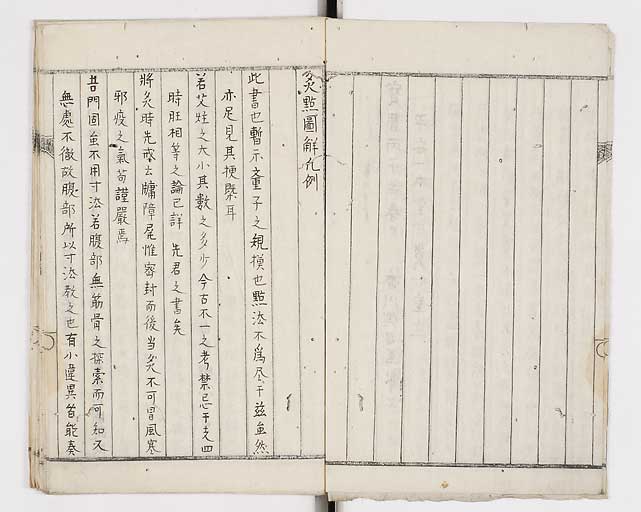 灸點圖解凡例
此書也暫示童子之規模也點法不爲尽于玆虽然
亦足見其梗槩耳
若艾炷之大小其數之多少今古不一之考禁忌干支四
時旺相等之論已詳 先君之書矣
將灸時先戒去牖障尾惟密封而後当灸不可冒風寒
邪疫之氣苟謹嚴焉
吾門固虽不用寸法若腹部無筋骨之探索而可知又
無處不徹故腹部所以寸法教之也有小違異皆能奏